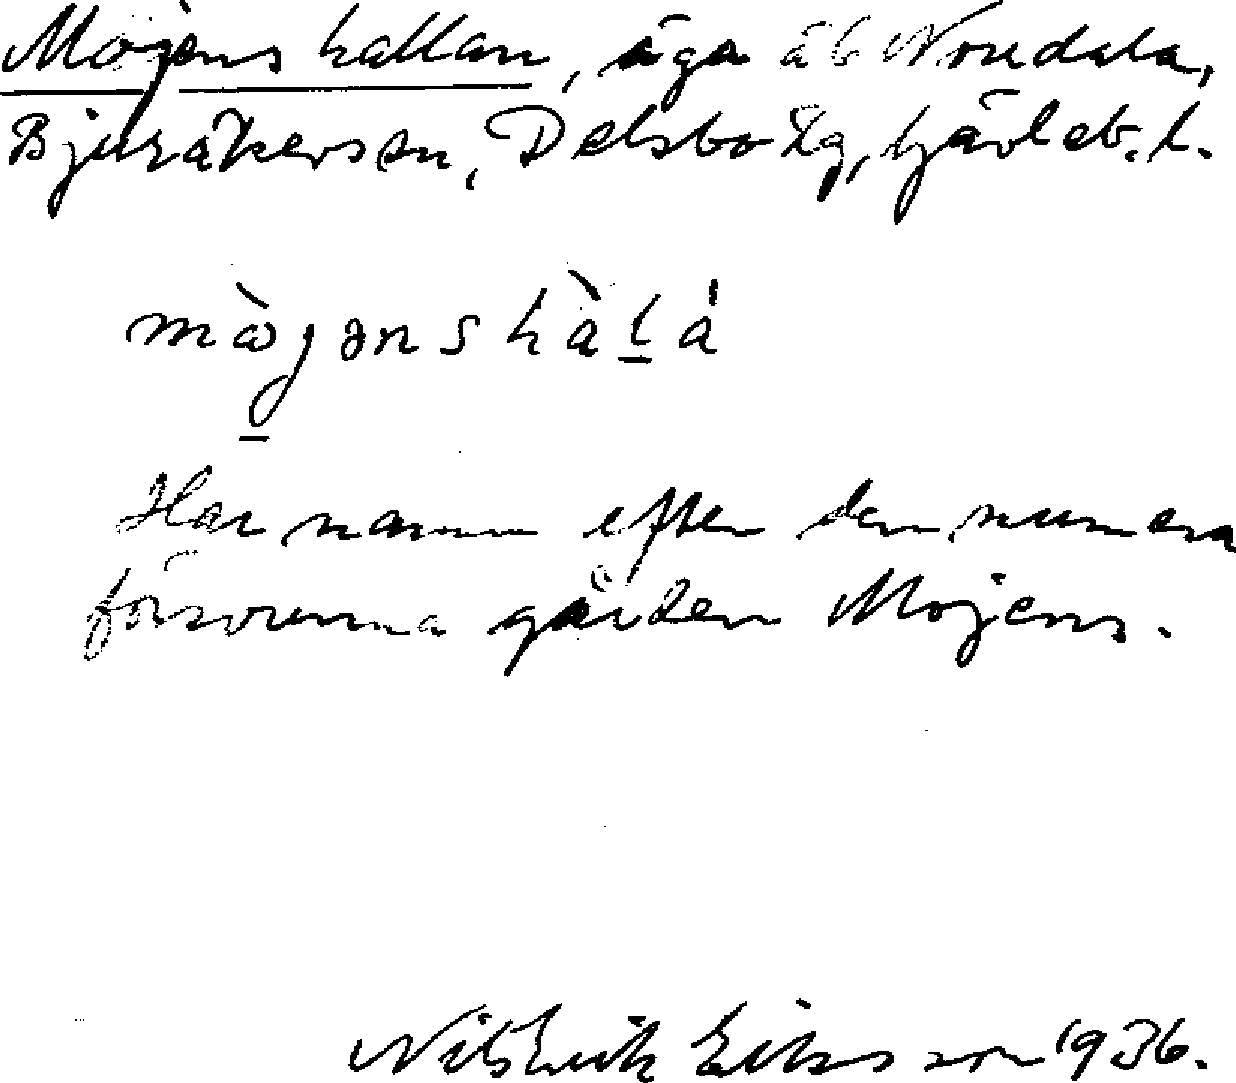 Mojens hallan, äga åt Norrdala,
Bjuråkers sn, Delsbo tg, Gävleb. l.
mɷ̀jəns hàlá
Har namn efter den numera
försvunna gården Mojens.
Nils Erik Eriksson 1936.